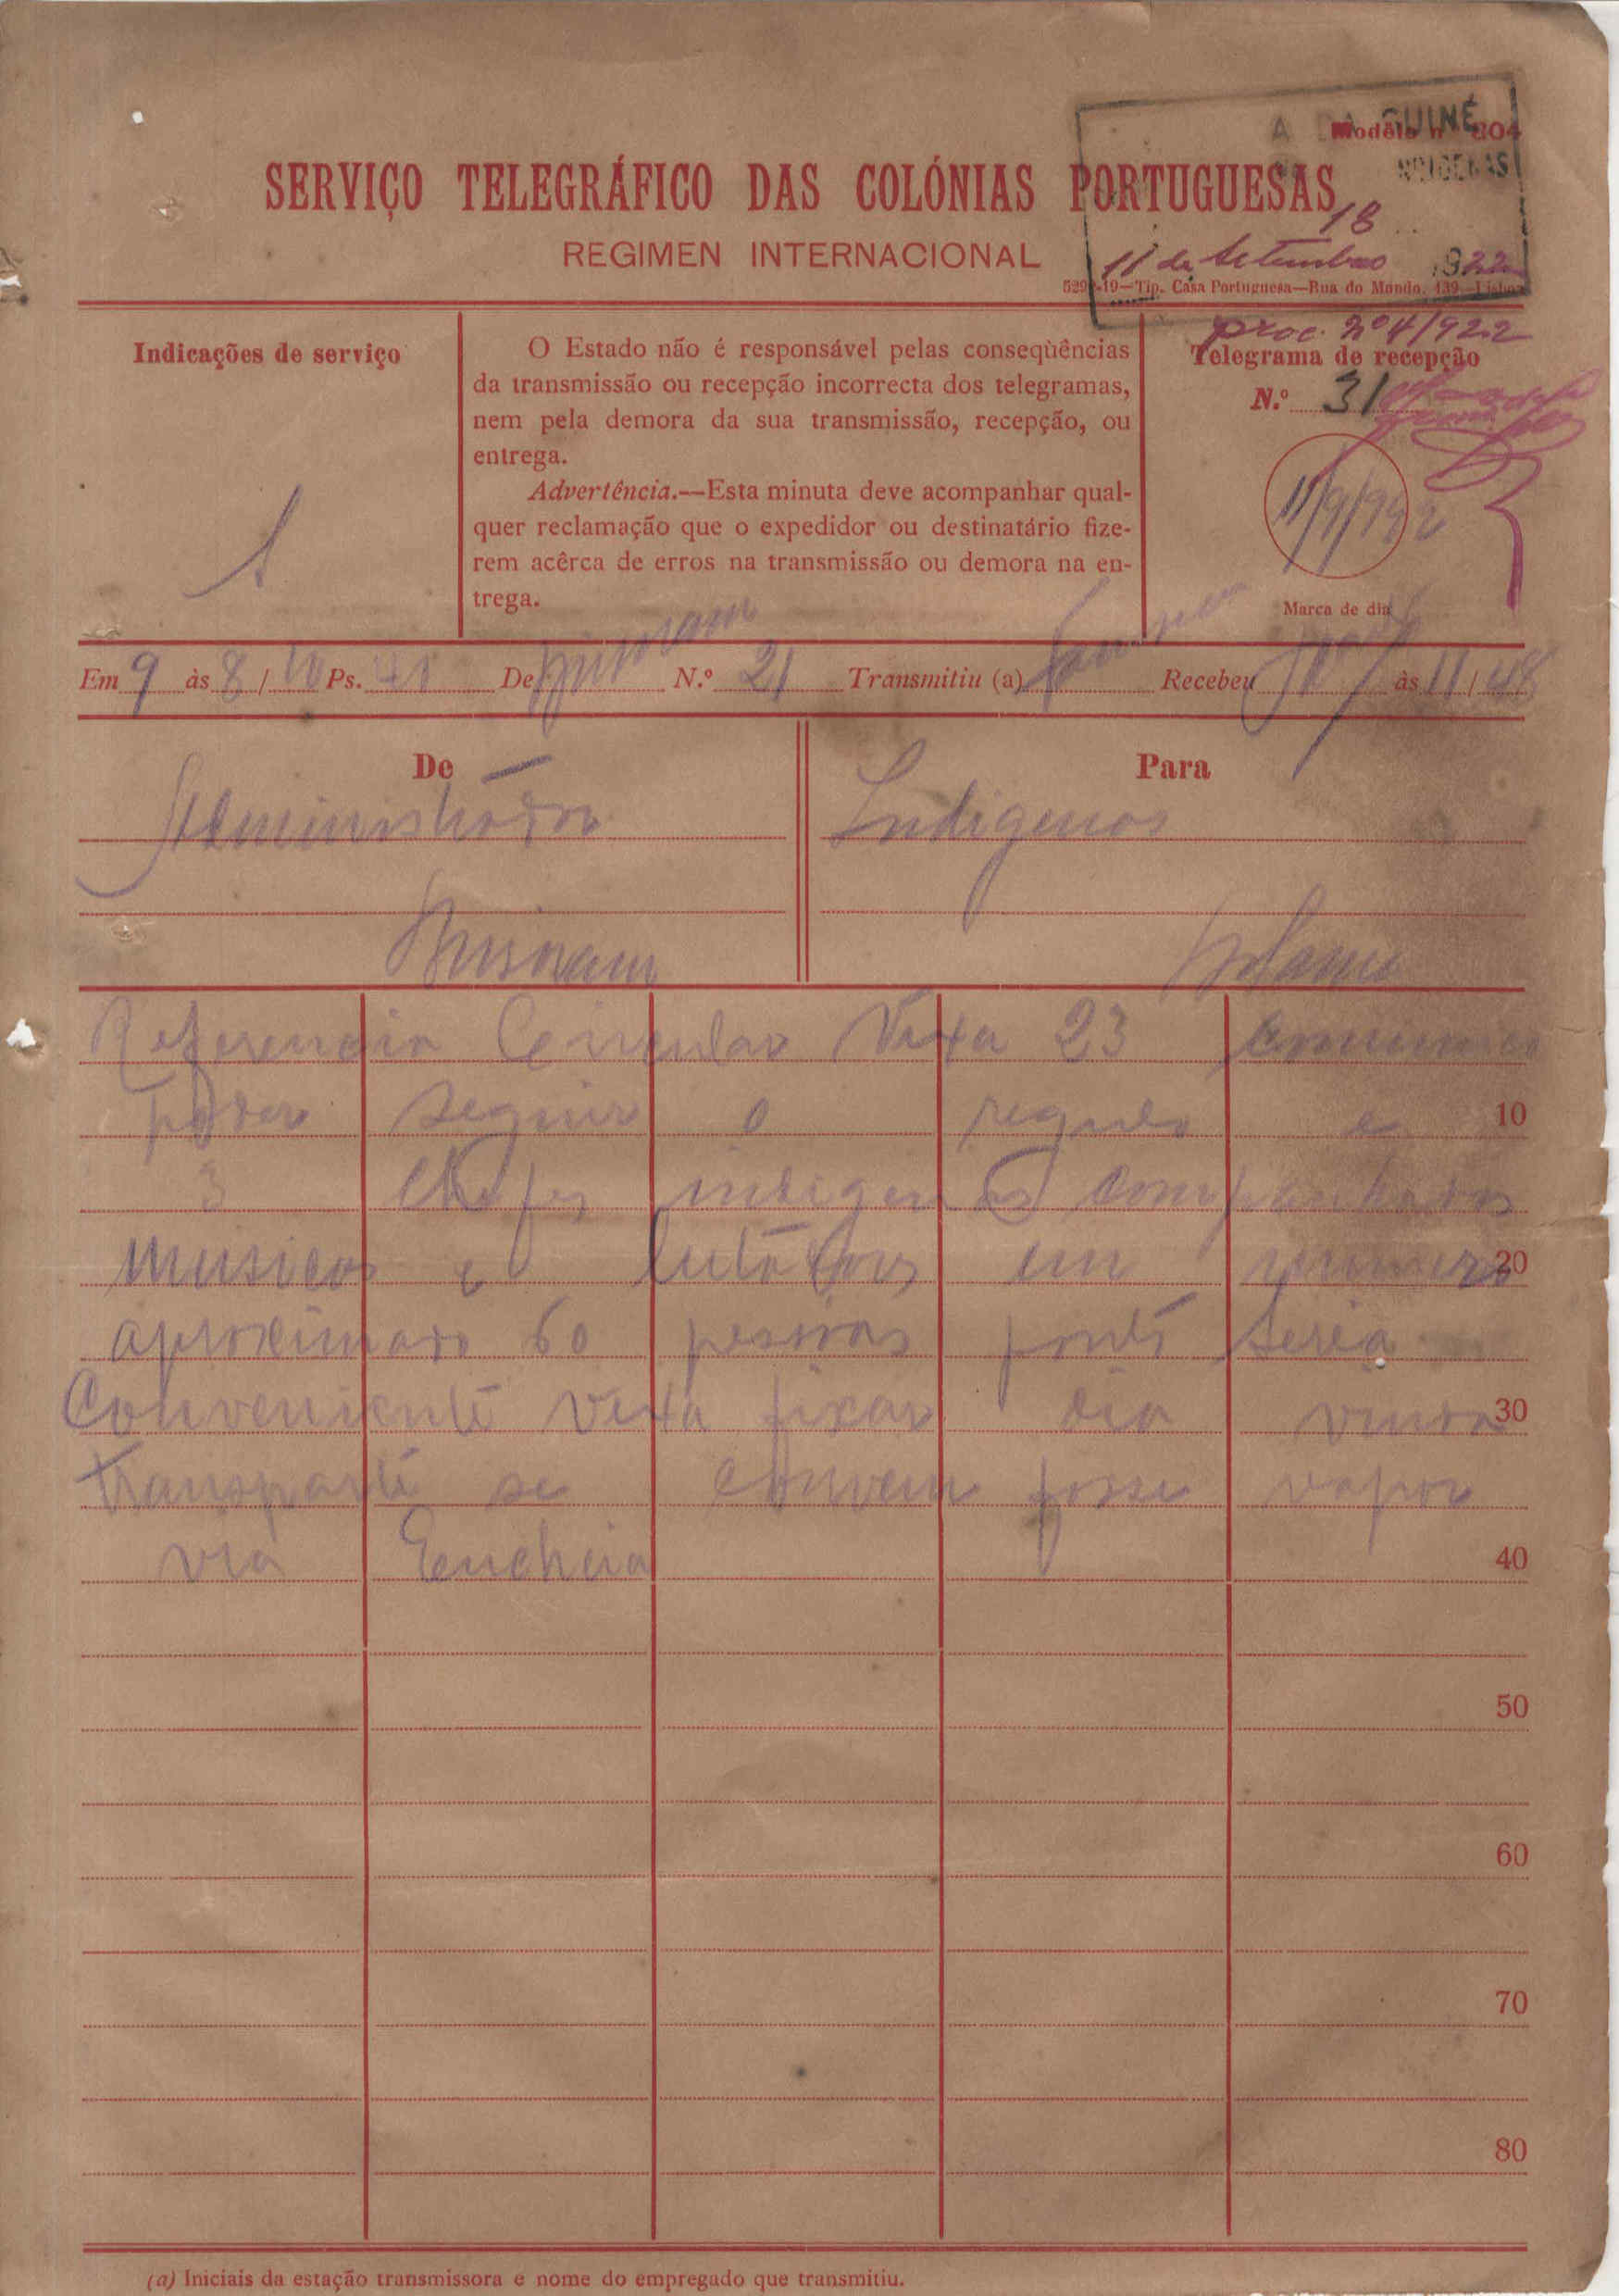 A DA GUINÉ
Modêlo n.º 804
INDIGENAS
SERVIÇO TELEGRÁFICO DAS COLÓNIAS PORTUGUESAS
18
REGIMEN INTERNACIONAL
11 de Setembro 1922
529-19—Tip. Casa Portuguesa—Rua do Mundo, 139—Lisboa
proc. nº 4/922
Indicações de serviço
S
O Estado não é responsável pelas conseqüências
da transmissão ou recepção incorrecta dos telegramas,
nem pela demora da sua transmissão, recepção, ou
entrega.
Advertência.—Esta minuta deve acompanhar qual-
quer reclamação que o expedidor ou destinatário fize-
rem acêrca de erros na transmissão ou demora na en-
trega.
Telegrama de recepção
N.º 31
11/9/922
Marca de dia
Em 9 às 8/10 Ps. 41 De Bissoram N.º 21 Transmitiu (a) Recebeu às 11/48
De
Administrador
Bissoram
Para
Indigenas
Bolama
Referencia Circular Vexa 23 comunico
poder seguir o regulo e 10
3 chefes indigenas companhados
musicos e lutadores em numero 20
aproximado 60 pessoas ponto seria
Conveniente Vexa fixar dia vinda 30
transporte se convem fosse vapor
via Encheia 40
50
60
70
80
(a) Iniciais da estação transmissora e nome do empregado que transmitiu.